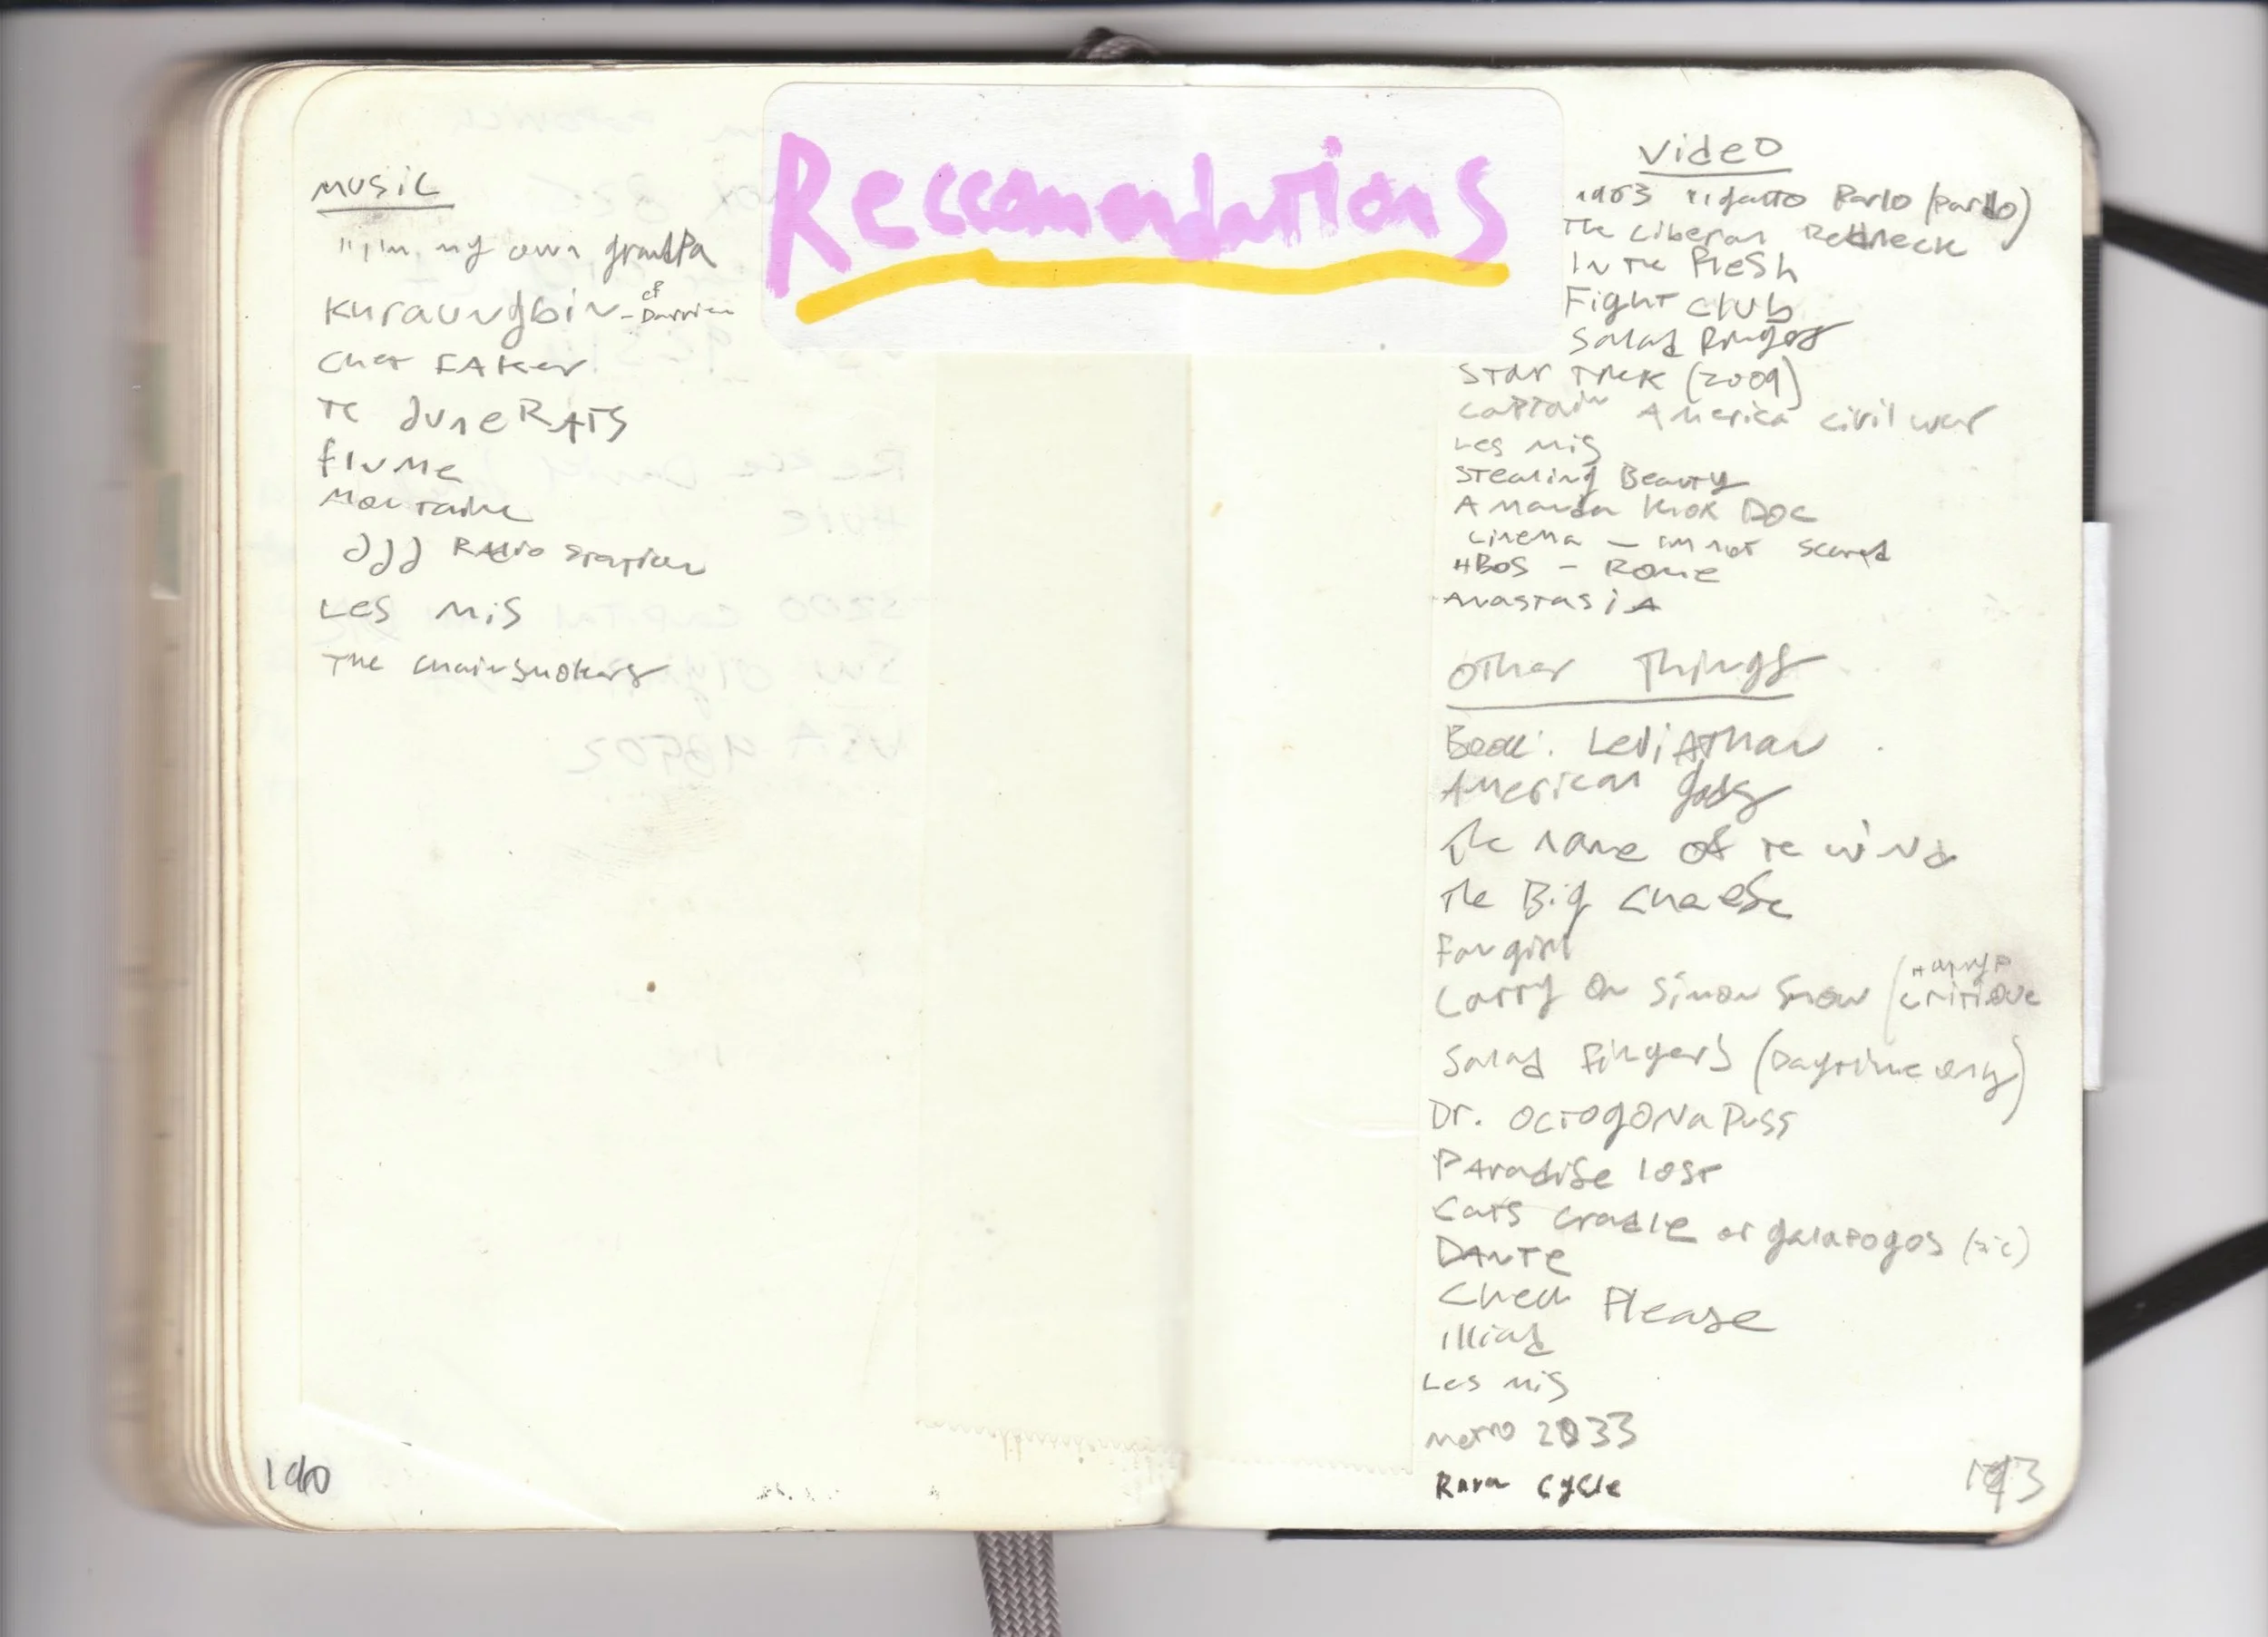 Reccomendations
Music
"I'm my own grandpa
Kuraungbin - cf Darrien
Chet FAKer
Te Dune RATS
flume
Mountaine
JJJ Radio Station
Les Mis
The Chainsmokers
140
Video
1963 Pardo)
The Liberal Redneck
In the Flesh
Fight Club
Salad Fingers
Star Trek (2009)
Captain America Civil War
Les Mis
Stealing Beauty
Amanda Knox Doc
Cinema - I'm not Scared
HBOS - Rome
Anastasia
Other Things
Book: Leviathan
American Gods
The name of te wind
The Big Cheese
Fangirl
Carry On Simon Snow (Harry P critique
Salad Fingers (Daytime only)
Dr. Octogonapuss
Paradise Lost
Cats Cradle or galapogos (sic)
DANTE
Check Please
Illiad
Les Mis
Metro 2033
Cycle